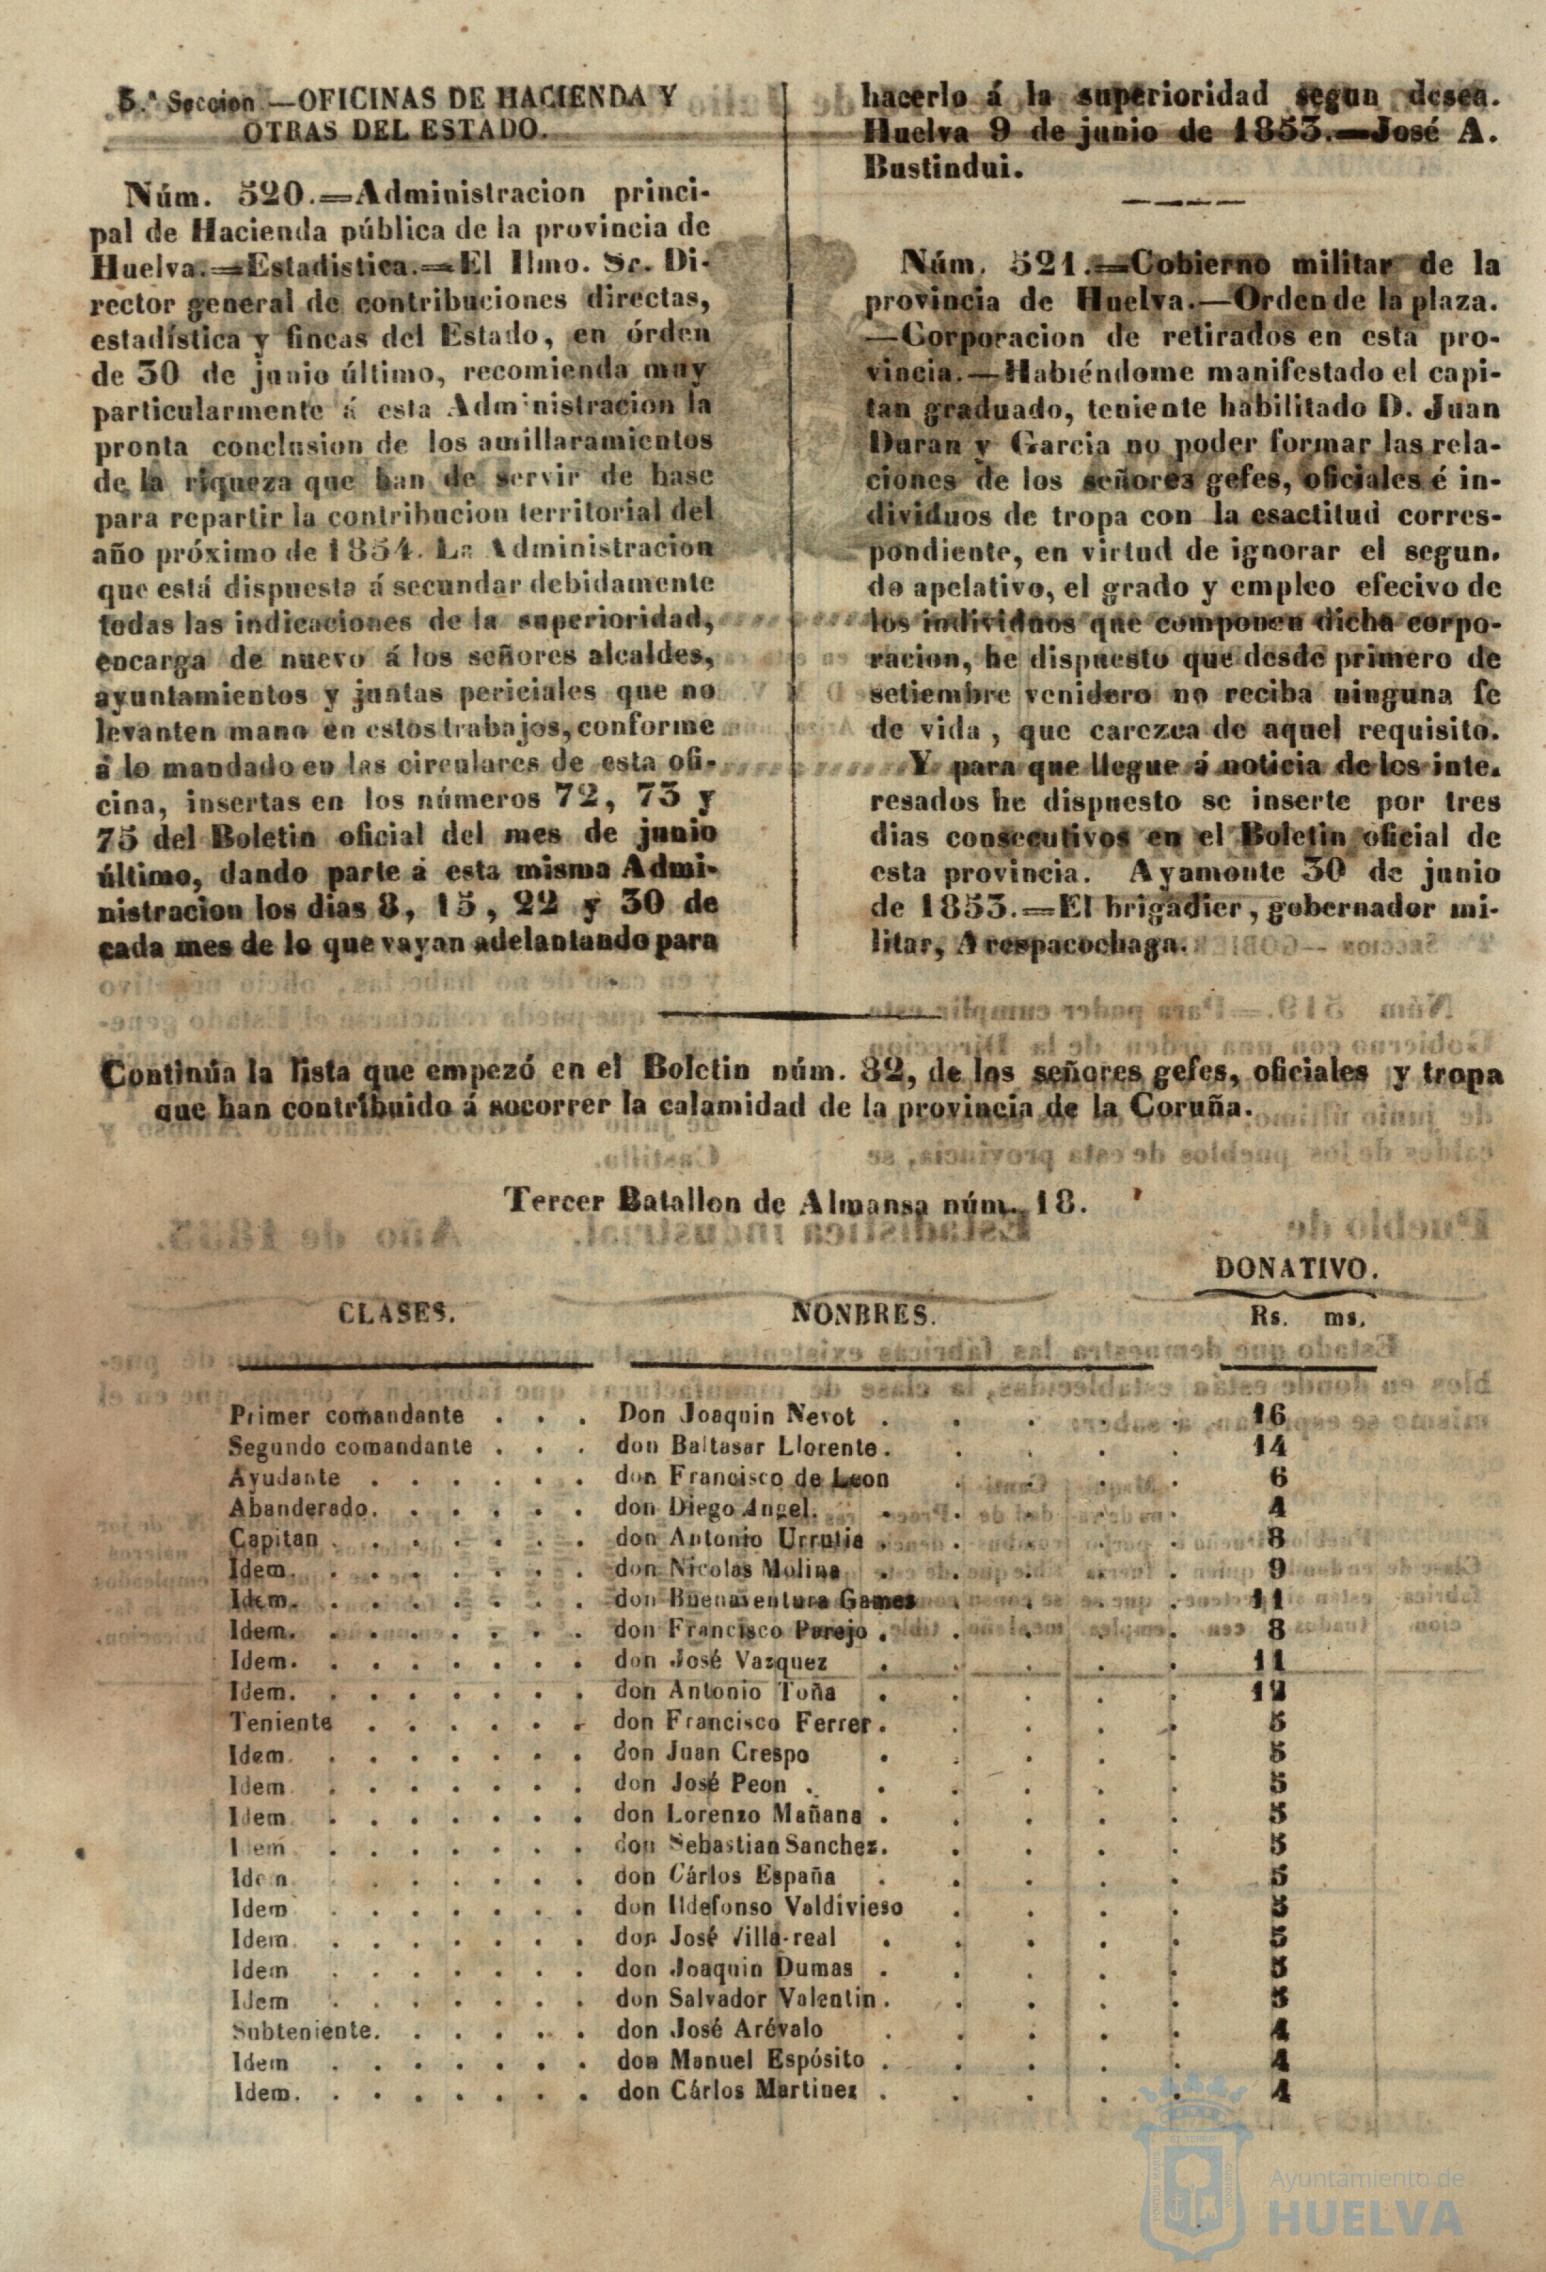 5.ª Seccion.—OFICINAS DE HACIENDA Y
OTRAS DEL ESTADO.
Núm. 520.=Administracion princi-
pal de Hacienda pública de la provincia de
Huelva.=Estadistica.=El Ilmo. Sr. Di-
rector general de contribuciones directas,
estadística y fincas del Estado, en órden
de 30 de junio último, recomienda muy
particularmente á esta Administracion la
pronta conclusion de los amillaramientos
de la riqueza que han de servir de base
para repartir la contribucion territorial del
año próximo de 1854. La Administracion
que está dispuesta á secundar debidamente
todas las indicaciones de la superioridad,
encarga de nuevo á los señores alcaldes,
ayuntamientos y juntas periciales que no
levanten mano en estos trabajos, conforme
á lo mandado en las circulares de esta ofi-
cina, insertas en los números 72, 73 y
75 del Boletin oficial del mes de junio
último, dando parte á esta misma Admi-
nistracion los dias 8, 15, 22 y 30 de
cada mes de lo que vayan adelantando para
hacerlo á la superioridad segun desea.
Huelva 9 de junio de 1853.—José A.
Bustindui.
Núm. 521.=Gobierno militar de la
provincia de Huelva.—Orden de la plaza.
—Corporacion de retirados en esta pro-
vincia.—Habiéndome manifestado el capi-
tan graduado, teniente habilitado D. Juan
Duran y Garcia no poder formar las rela-
ciones de los señores gefes, oficiales é in-
dividuos de tropa con la esactitud corres-
pondiente, en virtud de ignorar el segun.
do apelativo, el grado y empleo efecivo de
los individuos que componen dicha corpo-
racion, he dispuesto que desde primero de
setiembre venidero no reciba ninguna fe
de vida, que carezca de aquel requisito.
Y para que llegue á noticia de los inte.
resados he dispuesto se inserte por tres
dias consecutivos en el Boletin oficial de
esta provincia. Ayamonte 30 de junio
de 1853.=El brigadier, gobernador mi-
litar, Arespacochaga.
Continúa la lista que empezó en el Boletin núm. 82, de los señores gefes, oficiales y tropa
que han contribuido á socorrer la calamidad de la provincia de la Coruña.
Tercer Batallon de Almansa núm. 18.
DONATIVO.
CLASES. NONBRES. Rs. ms.
Primer comandante . . . Don Joaquin Nevot . . . . . 16
Segundo comandante . . . don Baltasar Llorente. . . . . 14
Ayudante . . . . . . don Francisco de Leon . . . . 6
Abanderado. . . . . . don Diego Angel. . . . . . 4
Capitan . . . . . . . don Antonio Urrutia . . . . . 8
Idem. . . . . . . . don Nicolas Molina . . . . . 9
Idem. . . . . . . . don Buenaventura Games . . . . 11
Idem. . . . . . . . don Francisco Parejo . . . . . 8
Idem. . . . . . . . don José Vazquez . . . . . 11
Idem. . . . . . . . don Antonio Toña . . . . . 12
Teniente . . . . . . don Francisco Ferrer. . . . . 5
Idem. . . . . . . . don Juan Crespo . . . . . 5
Idem . . . . . . . don José Peon . . . . . . 5
Idem . . . . . . . don Lorenzo Mañana . . . . . 5
Idem . . . . . . . don Sebastian Sanchez. . . . . 5
Idem . . . . . . . don Cárlos España . . . . . 5
Idem . . . . . . . don Ildefonso Valdivieso . . . . 5
Idem . . . . . . . don José Villa-real . . . . . 5
Idem . . . . . . . don Joaquin Dumas . . . . . 5
Idem . . . . . . . don Salvador Valentin . . . . . 5
Subteniente. . . . . . don José Arévalo . . . . . 4
Idem . . . . . . . don Manuel Espósito . . . . . 4
Idem. . . . . . . . don Cárlos Martinez . . . . . 4
Ayuntamiento de
HUELVA